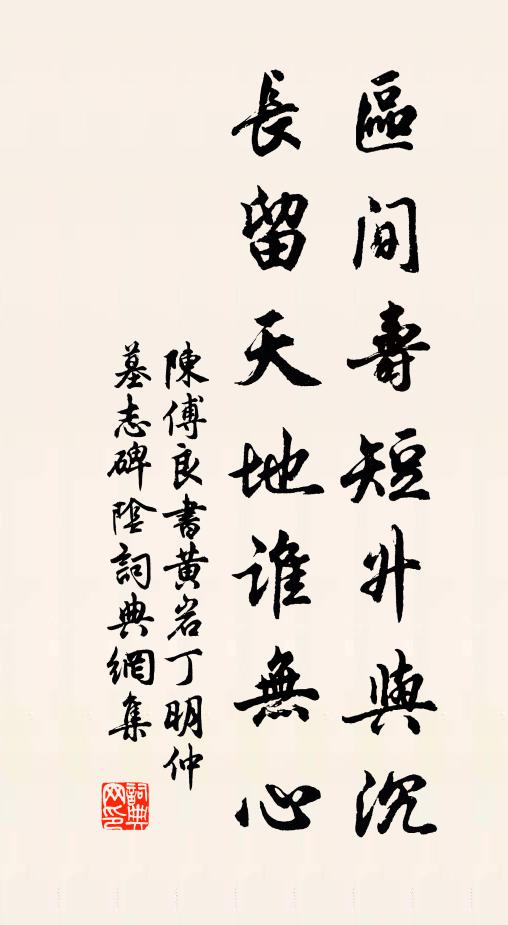 區間壽短升與沉
長留天地誰無心
陳傅良書黄岩丁明仲
墓志碑陰詞典網集
詞典网印